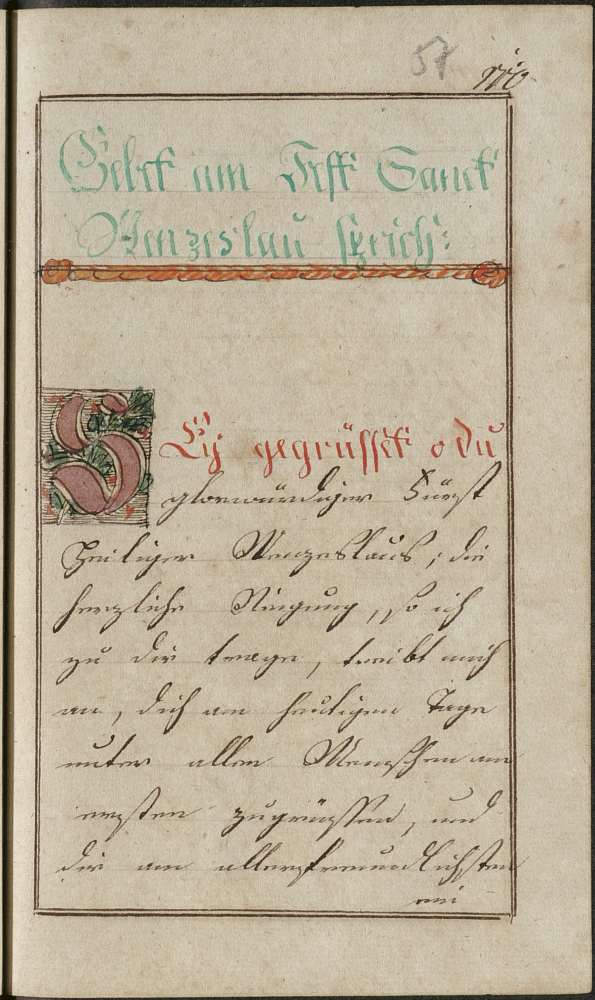 57
Gebet am Fest Sanct
Wenzeslau sprich:
SEy gegrüsset o du
glorwürdiger Fürst
Heiliger Wenzeslaus, die
herzliche Neigung, so ich
zu dir trage, treibt mich
an, dich am heutigen Tage
unter allen Menschen am
ersten zugrüssen, und
dir am allerfreundlichsten